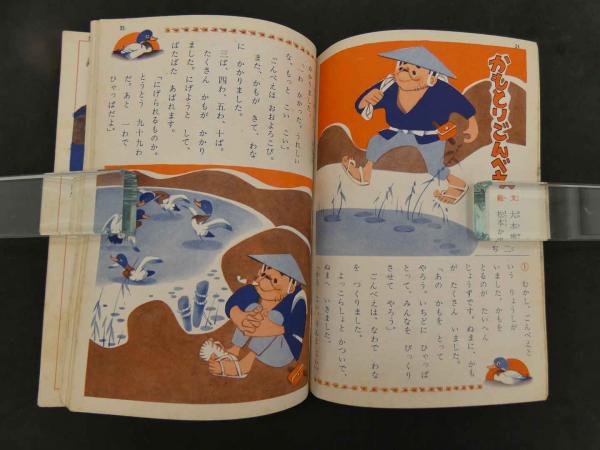 24
かもとりごんべえ
文
大木
絵
松本か
① むかし、ごんべえと
いう りょうしが
いました。かもを
とるのが たいへん
じょうずです。ぬまに、かも
が たくさん いました。
「あの かもを とって
やろう。いちどに ひゃっぱ
とって、みんなを びっくり
させて やろう。」
ごんべえは、なわで わな
を つくりました。
よっこらしょと かついで、
ぬまへ いきました。
25
かかりました。
「わあ かかった。うれしい
な、もっと こい こい。」
ごんべえは おおよろこび。
また、かもが きて、わな
に かかりました。
三ば、四わ、五わ、十ぱ。
たくさん かもが かかり
ました。にげようと して、
ばたばた あばれます。
「にげられるものか。
とうとう 九十九わ
だ。あと 一わで
ひゃっぱだよ。」